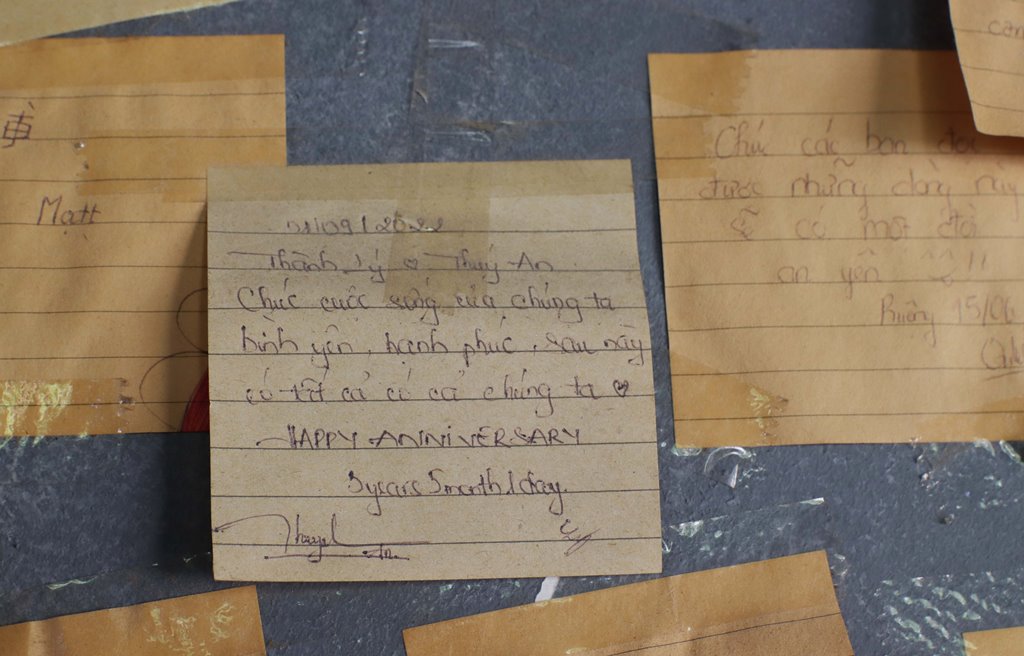 Matt
01/09/2022
Thành Lý ♡ Thúy An
Chúc cuộc sống của chúng ta
bình yên, hạnh phúc, sau này
có tất cả có cả chúng ta ♡
HAPPY ANNIVERSARY
5 years 5 month 1 day.
Chúc các bạn đọc
được những dòng này
sẽ có một đời
an yên !!
15/06